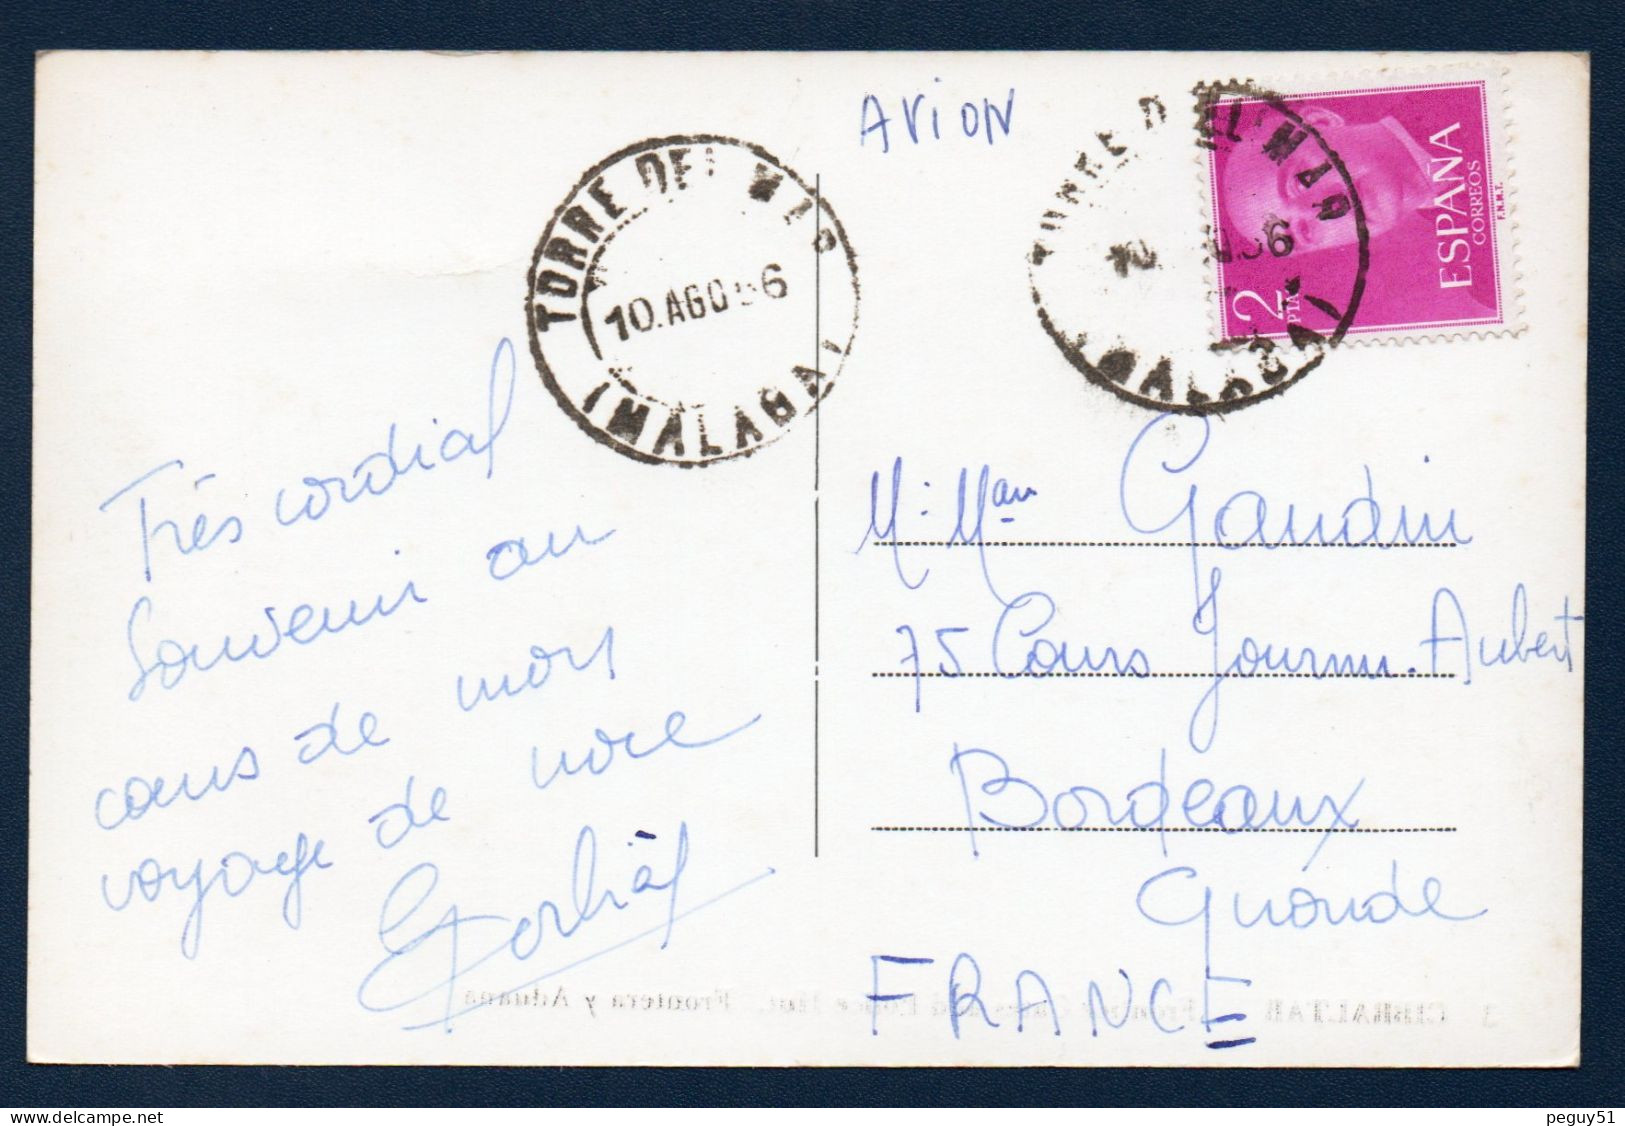 AVION
TORRE DEL MAR
10.AGO 56
(MALAGA)
TORRE DEL MAR
10
56
(MALAGA)
ESPAÑA
CORREOS
2
PTA
F.N.M.T.
Très cordial
souvenir au
cours de mon
voyage de noce
M. Mme Gaudin
75 Cours Journu. Aubert
Bordeaux
Gironde
FRANCE
3 GIBRALTAR Frontier Gates and Police Hut. Frontera y Aduana
www.delcampe.net
peguy51